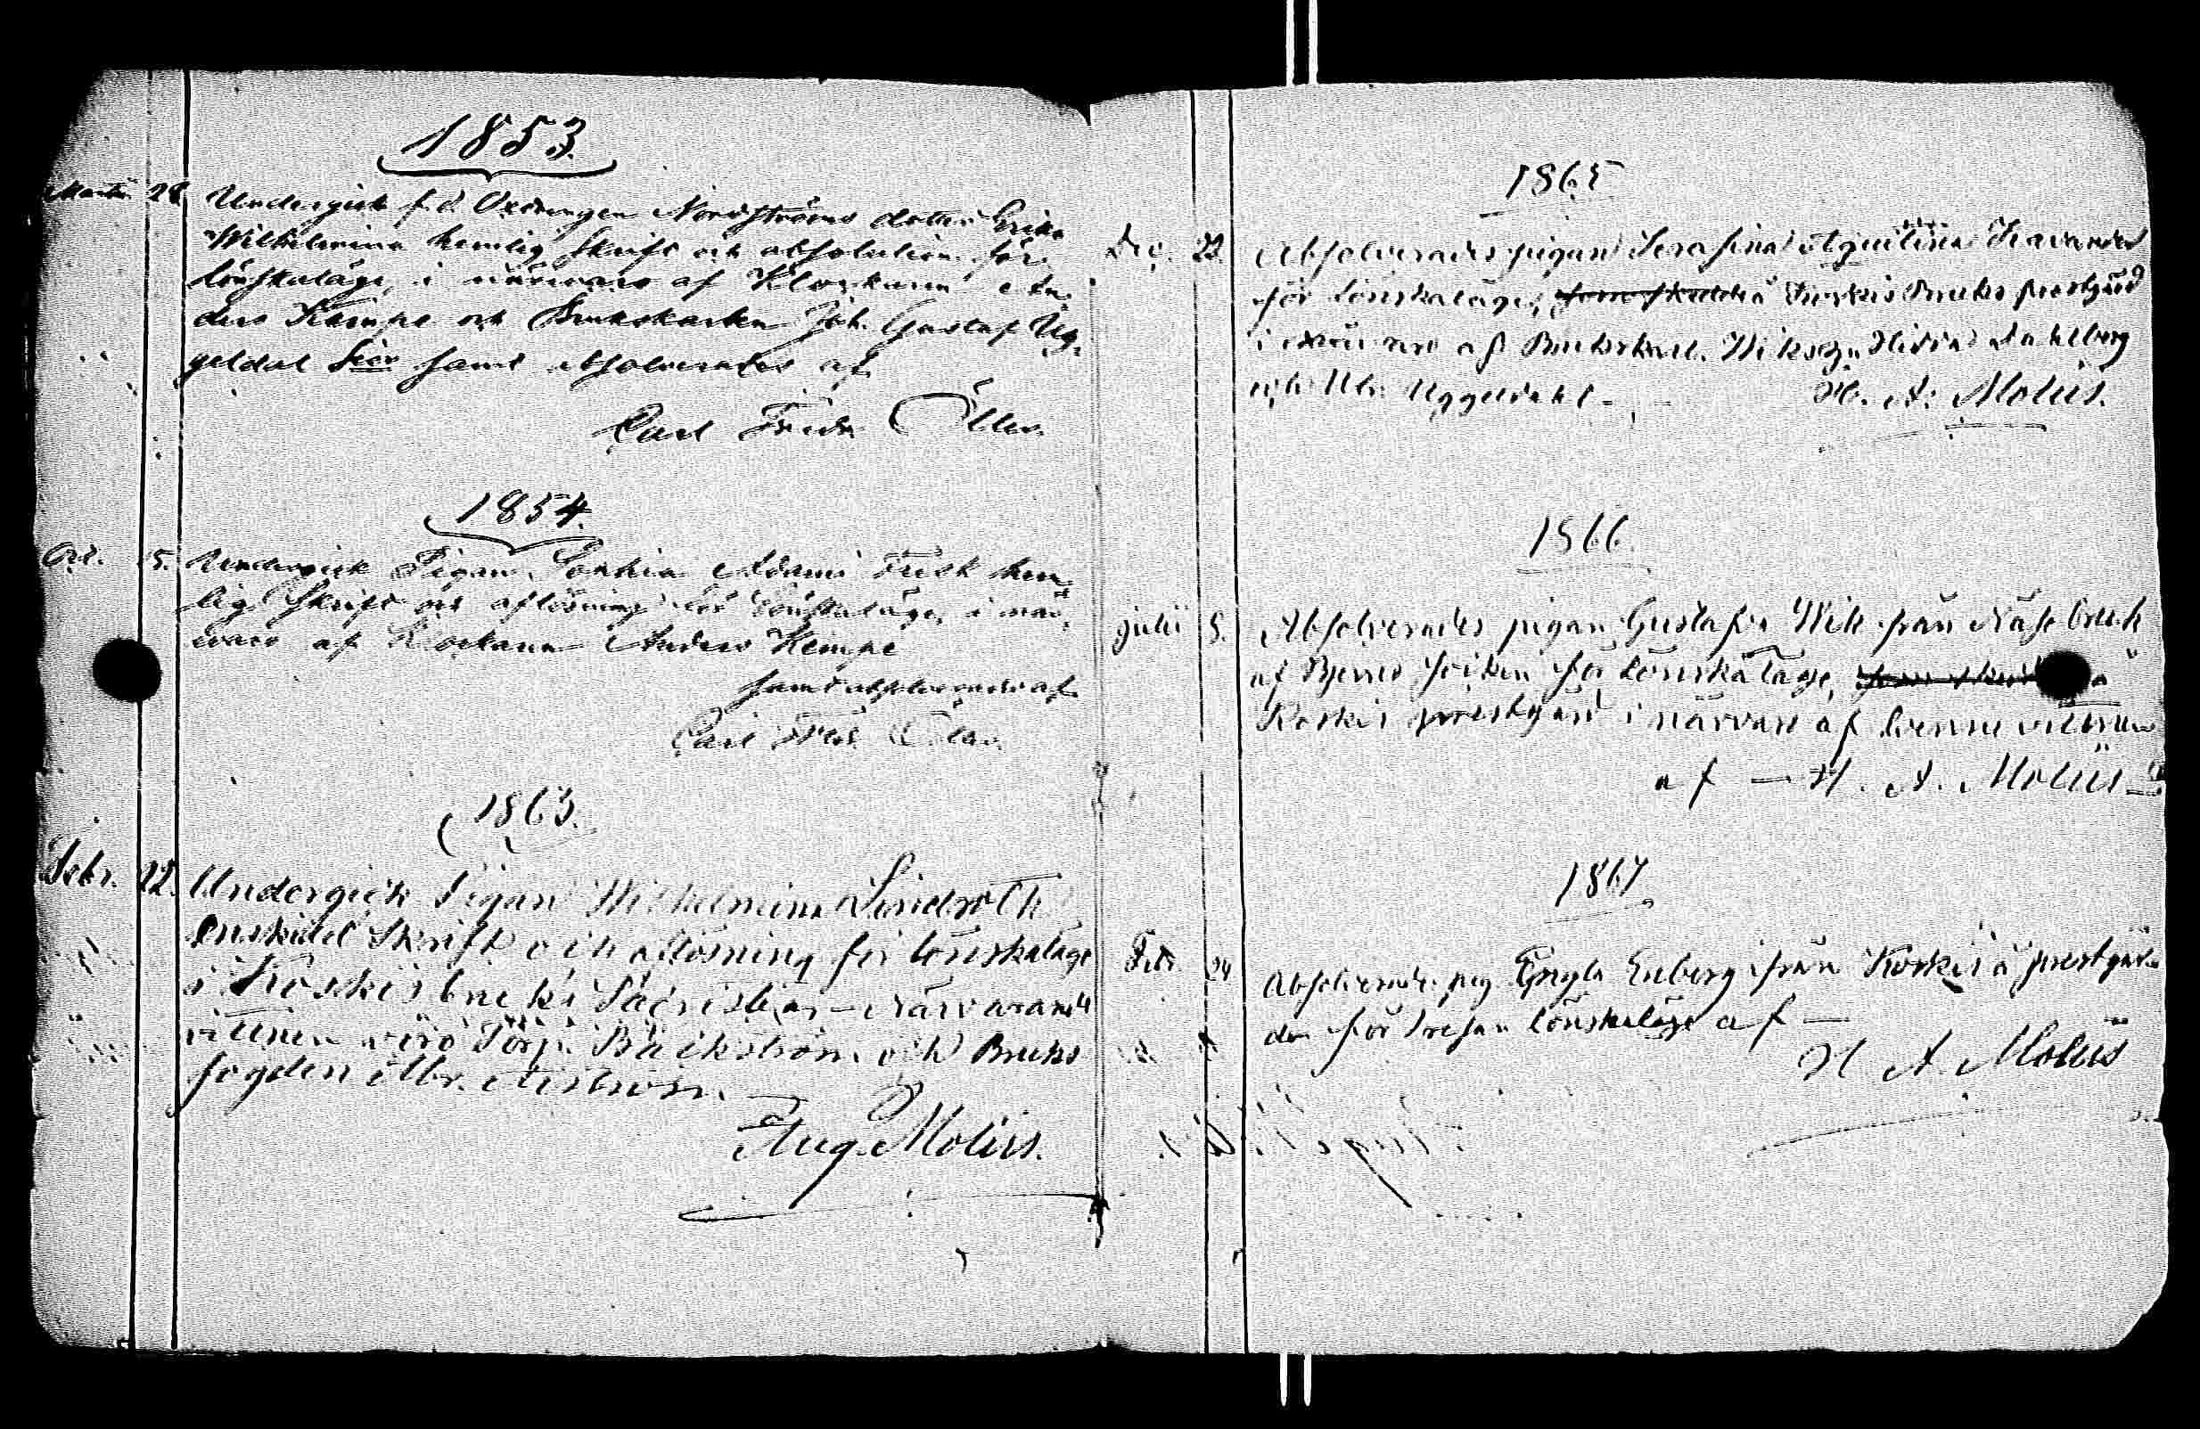 1853.
Martii 28 Undergick f.d. Oxdrengen Nordströms dotter Erika
Wilhelmina hemlig Skrift och absolution för
lönskaläge, i närvaro af Klockaren An-
ders Kempe och Brukskarlen Joh. Gustaf Ug-
geldal samt absolverades af
Carl Fredr Öller.
1854.
Oct. 15. Undergick Pigan Adami Frisk hem-
lig Skrift och aflösning för Lönskaläge, i när-
varo af Klockaren Anders Kempe
samt absolverades af
Carl Fredr Öller.
1863.
Febr. 22. Undergick Pigan Wilhelmina Lindroth
enskild Skrift och aflösning för lönskaläge
i Koskis bruks Sacristia, närvarande
vittnen voro Torp. Bäckström och Bruks
fogden
Aug. Molius.
1865
Dec. 23. Absolverades pigan Serafina Aquilina
för Lönskaläge, Koskis Bruks prestgård
i närvaro af Brukskarl. Wiksten Dahlberg
och Uggeldahl - H. A. Molius.
1866.
Julii 5. Absolverades pigan Gustafva Wik från Näse bruk
af för Lönskaläge, å
Koskis prestgård i närvaro af vittnen
af — H. A. Molius
1867
Febr. 24 Absolverades pig Engla Enberg från Koskis å prestgår-
den för lönskaläge af —
H A. Molius